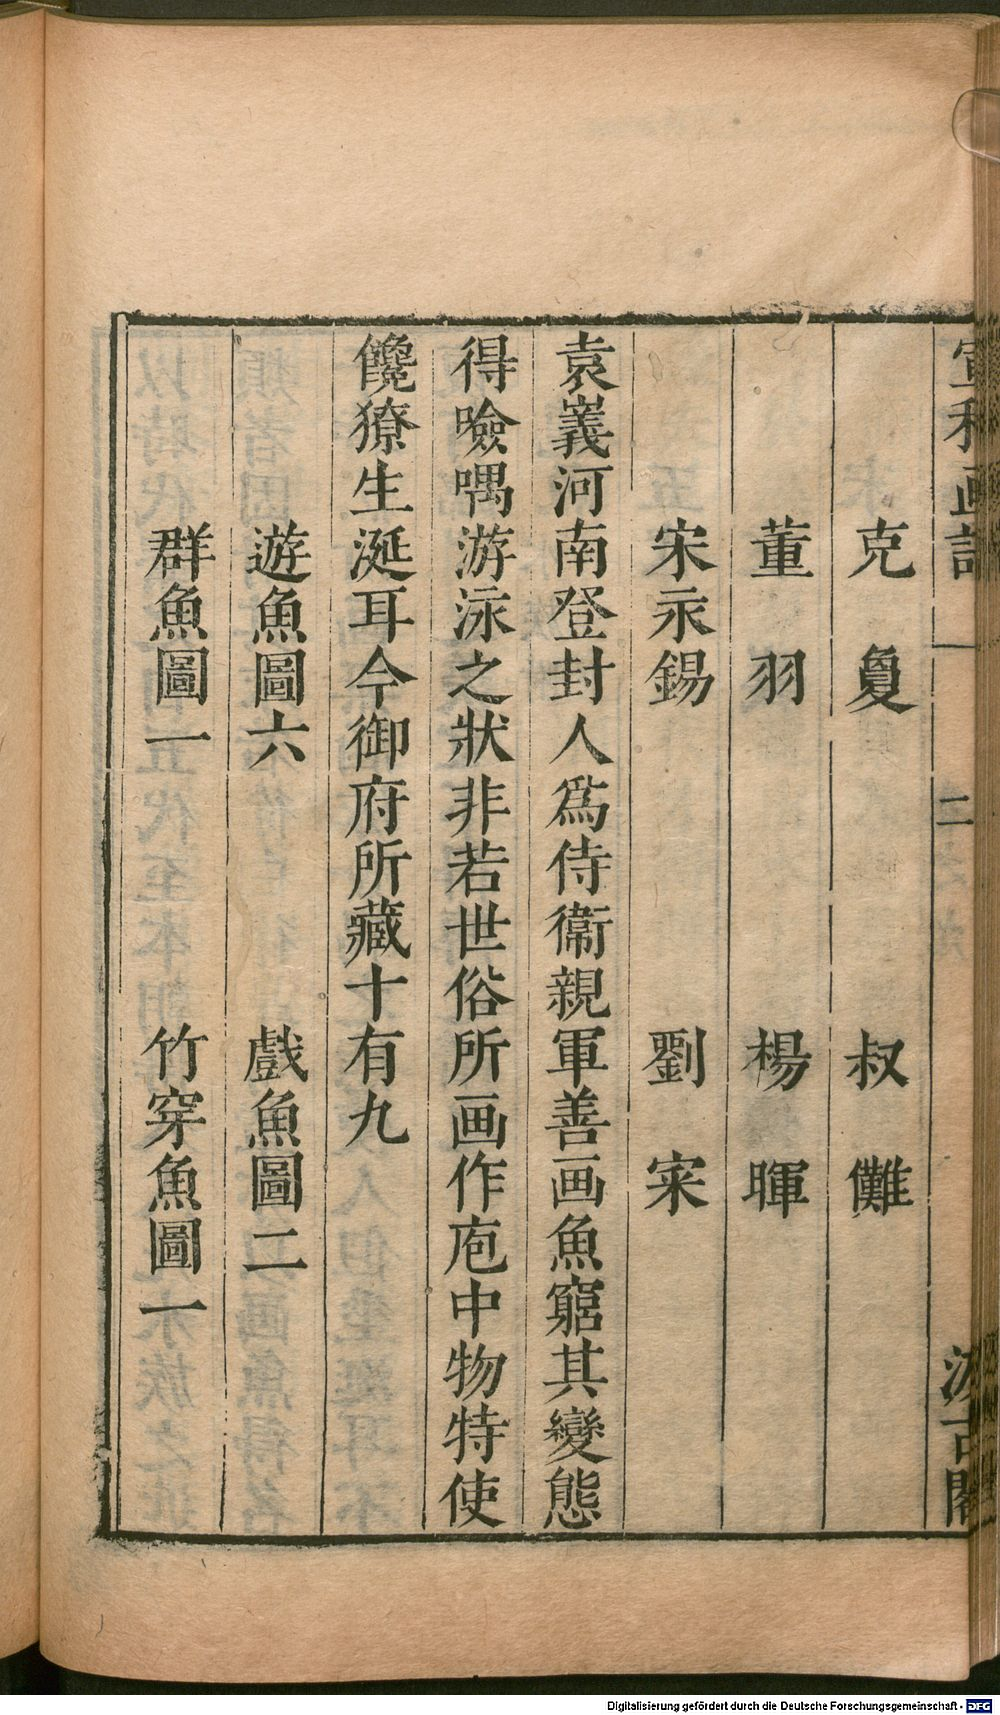 宣和画譜 二 汲古閣
克敻 叔儺
董羽 楊暉
宋永錫 劉寀
袁嶬河南登封人爲侍衞親軍善画魚窮其變態
得噞喁游泳之狀非若世俗所画作庖中物特使
饞獠生涎耳今御府所藏十有九
遊魚圖六 戲魚圖二
群魚圖一 竹穿魚圖一
Digitalisierung gefördert durch die Deutsche Forschungsgemeinschaft - DFG